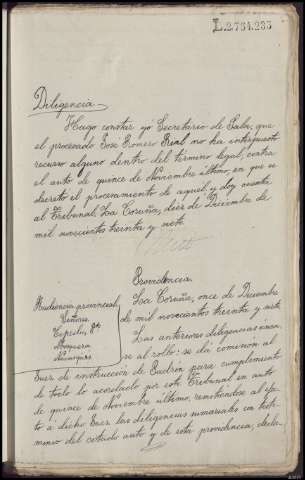 L.2.734.233
Diligencia
Hago constar yo Secretario de Sala, que
el procesado José Romero Real no ha interpuesto
recurso alguno dentro del término legal, contra
el auto de quince de Noviembre último, en que se
decretó el procesamiento de aquel, y doy cuenta
al Tribunal. La Coruña, diez de Diciembre de
mil novecientos treinta y siete
Providencia.
Audiencia provincial
Señores
La Coruña, once de Diciembre
de mil novecientos treinta y siete
Las anteriores diligencias unan-
se al rollo; se dá comisión al
Juez de instrucción de para cumplimento
de todo lo acordado por este Tribunal en auto
de quince de Noviembre último, remitiéndose al
to a dicho Juez las diligencias sumariales con testi-
monio del citado auto y de esta providencia,